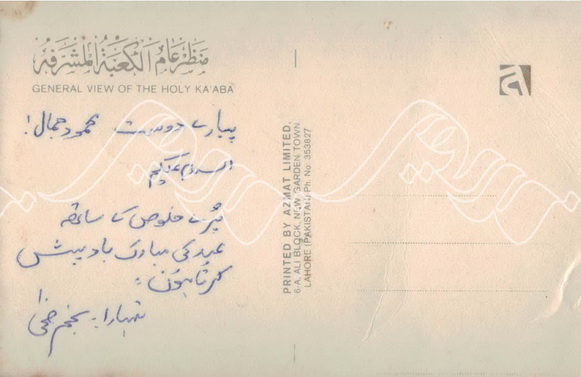 منظر عام الكعبة المشرفة
GENERAL VIEW OF THE HOLY KA'ABA
پیارے دوست محمود جمال!
السلام علیکم
پُرے خلوص کا ساتھ
عید کی مبارک باد پیش
کرتا ہوں۔
تمہارا۔ نجم
PRINTED BY AZMAT LIMITED.
6-A, ALI BLOCK, NEW GARDEN TOWN
LAHORE (PAKISTAN) Ph. No: 353827